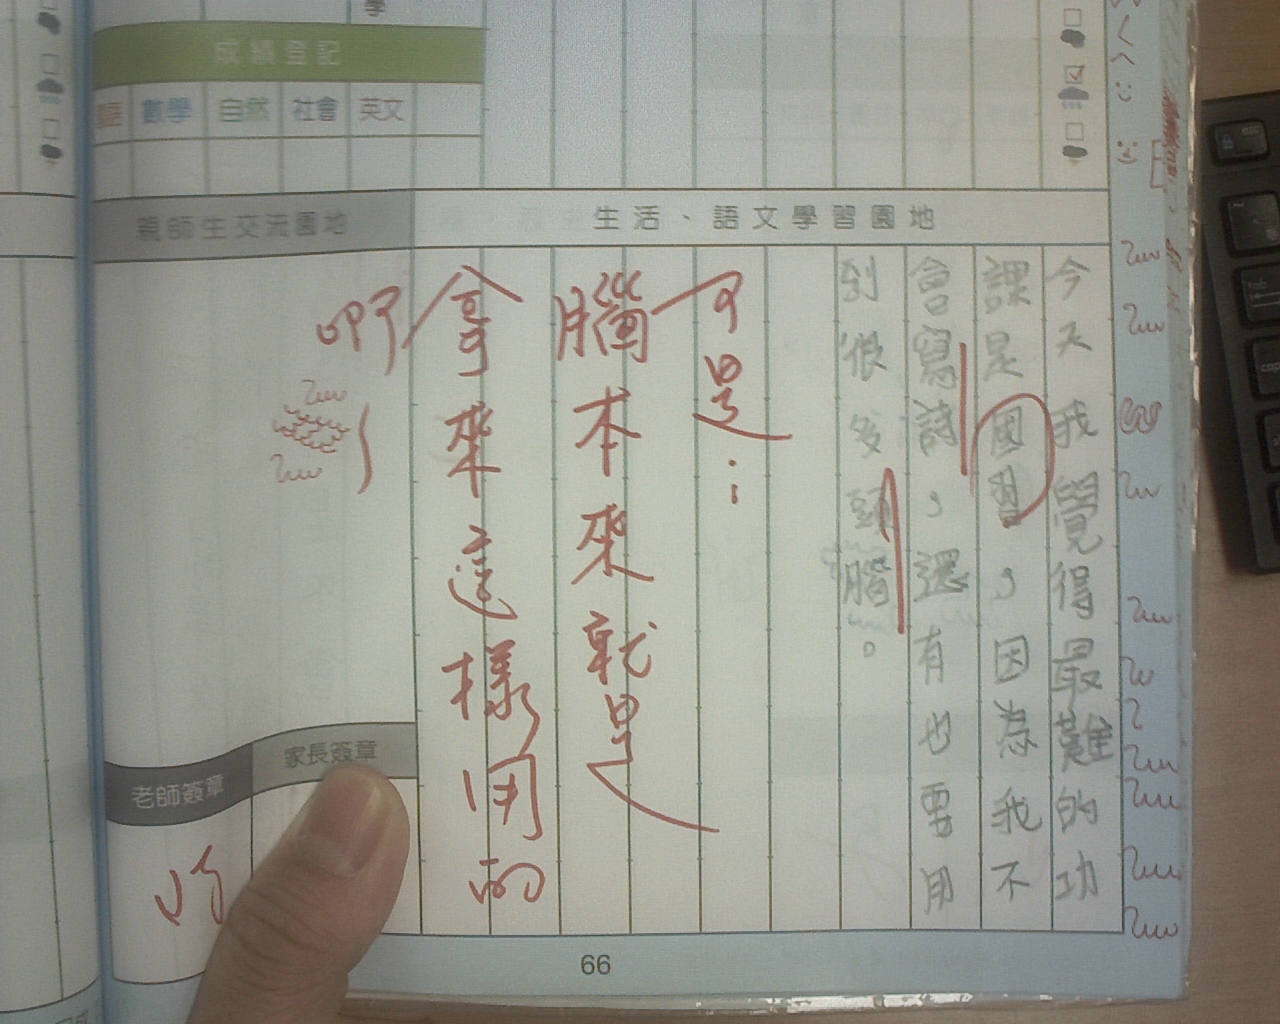 成績登記
國語 數學 自然 社會 英文
親師生交流園地
生活、語文學習園地
今天我覺得最難的功
課是國習，因為我不
會寫詩，還有也要用
到很多頭腦。
可是…
腦本來就是
拿來這樣用的
啊
家長簽章
老師簽章
66